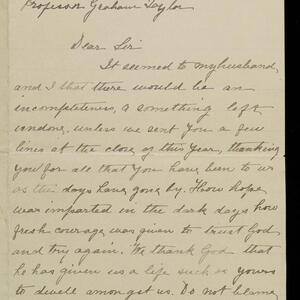 Professor Graham Taylor
Dear Sir
It seemed to my husband,
and I that there would be an
incompleteness, a something left
undone, unless we sent you a few
lines at the close of this Year, thanking
You for all that You have been to us
as the days have gone by. How hope
was imparted in the dark days how
fresh courage was given to trust God
and try again. We thank God that
he has given us a life such as yours
to dwell amongst us. Do not blame